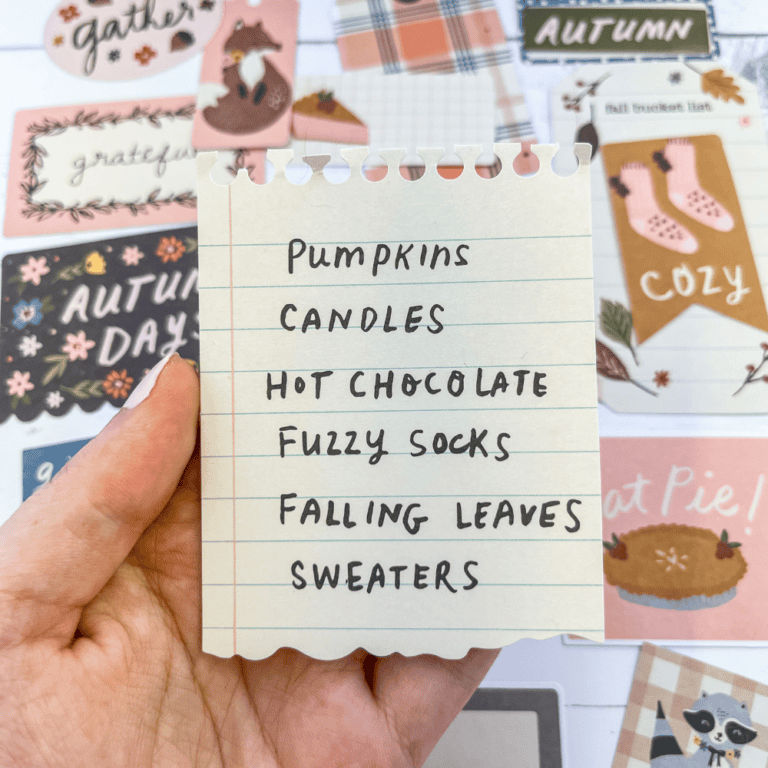 gather
AUTUMN
fall bucket list
grateful
AUTUMN
DAYS
COZY
Pumpkins
CANDLES
HOT CHOCOLATE
FUZZY SOCKS
FALLING LEAVES
SWEATERS
Pie!